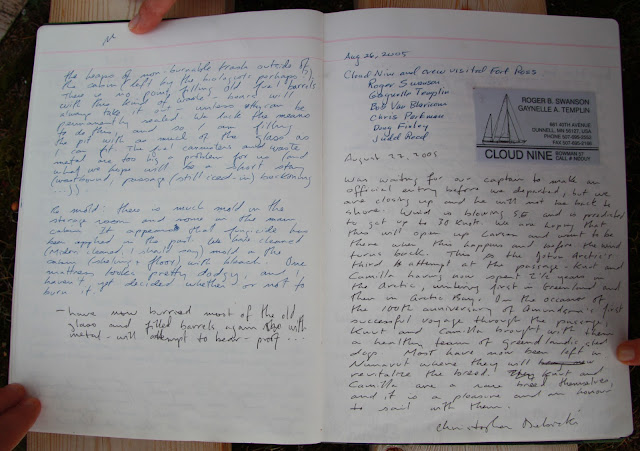 the heaps of non-burnable trash outside of
the cabin (left by the biologists perhaps).
There is no point filling old fuel barrels
with this kind of waste;
always take it out - unless they can be
permanently sealed. We lack the means
to do this, and so I am filling
the pit with as much of the glass as
I can fit. The fuel canisters and waste
metal are too big a problem for us (and
what we hope will be a short stay
Re mold: there is much mold in the
storage room and some in the main
cabin. It appears that fungicide has
been applied in the past. We have cleaned
(Mostly cleaned, I should say) mold in the
cabin (ceiling + floor) with bleach. One
mattress looks pretty dodgy, and I
haven't yet decided whether or not to
burn it.
- have now burned most of the old
glass and filled barrels again with
metal - will attempt to bear-proof...
Aug 26, 2005
Cloud Nine and crew visited Fort Ross
Roger Swanson
Gaynelle Templin
Bob Van
Chris Parkman
Doug Finley
Judd Reed
ROGER B. SWANSON
GAYNELLE A. TEMPLIN
DUNNELL, MN 56127, USA
CLOUD NINE
BOWMAN 57
August 27, 2005
Was waiting for our captain to make an
official entry before we departed, but we
are closing up and he will not be back to
shore. Wind is blowing SE and is predicted
to get up to 30 knots. We are hoping that
this will open up Larsen and want to be
there when this happens and before the wind
turns back. This is the Jotun Arctic's
third attempt at the passage - Knut and
Camilla having now spent 2 1/2 years in
the Arctic, wintering first in Greenland and
then in Arctic Bay. On the occasion of
the 100th anniversary of Amundsen's first
successful voyage through the passage,
Knut and Camilla brought with them
a healthy team of greenlandic sled
dogs. Most have now been left in
Nunavut where they will
revitalize the breed. Knut and
Camilla are a rare breed themselves,
and it is a pleasure and an honour
to sail with them.
Christopher